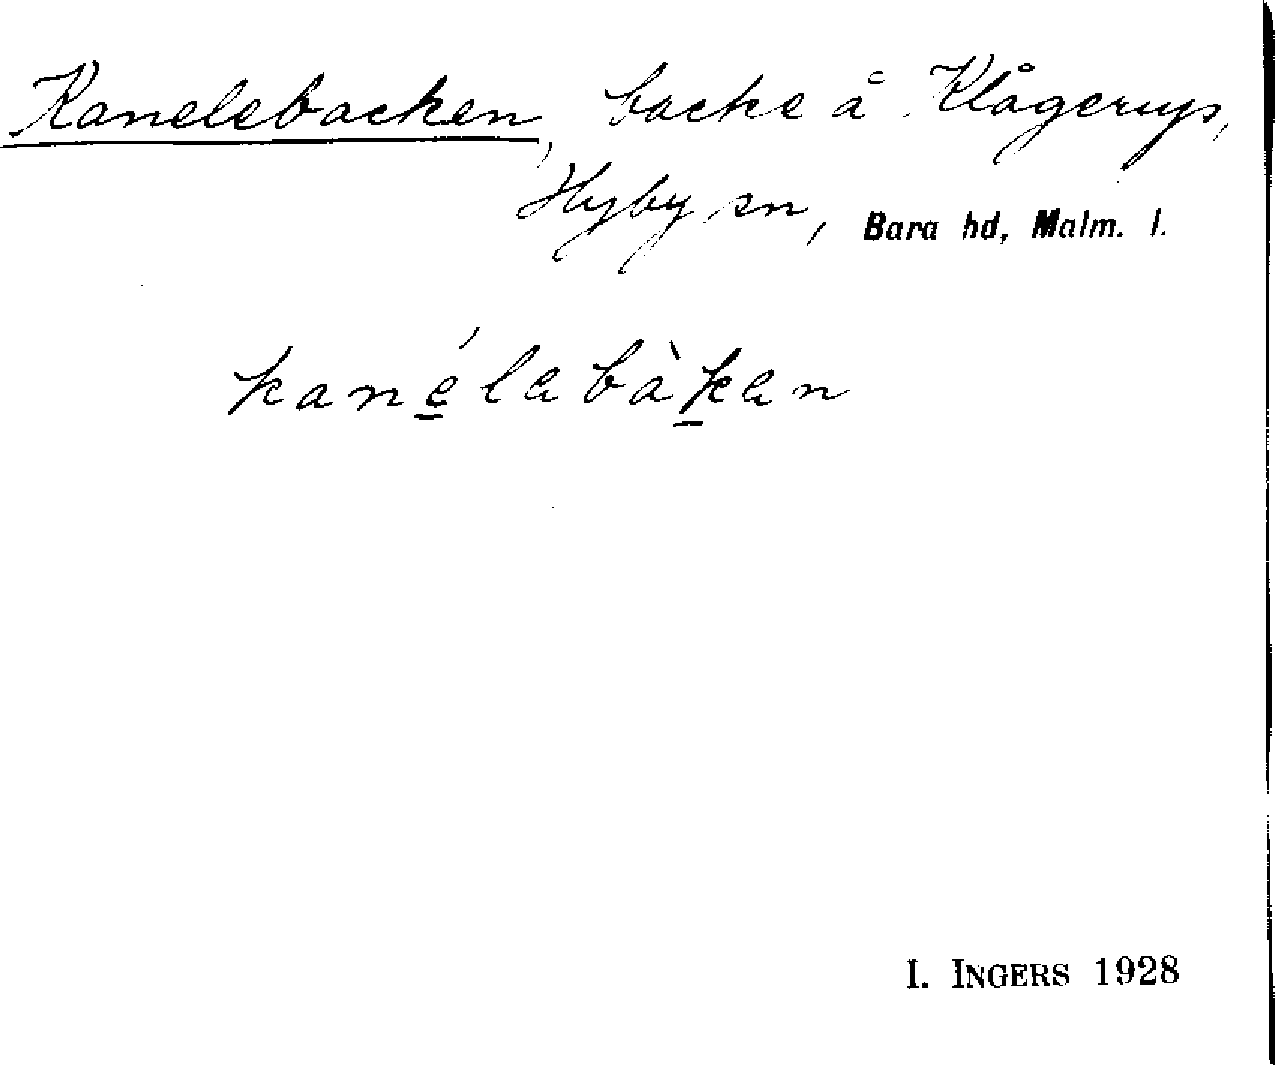 Kanelebacken, backe å Klågerup,
Hyby sn, Bara hd, Malm. l.
kané̠labàk̠an
I. INGERS 1928